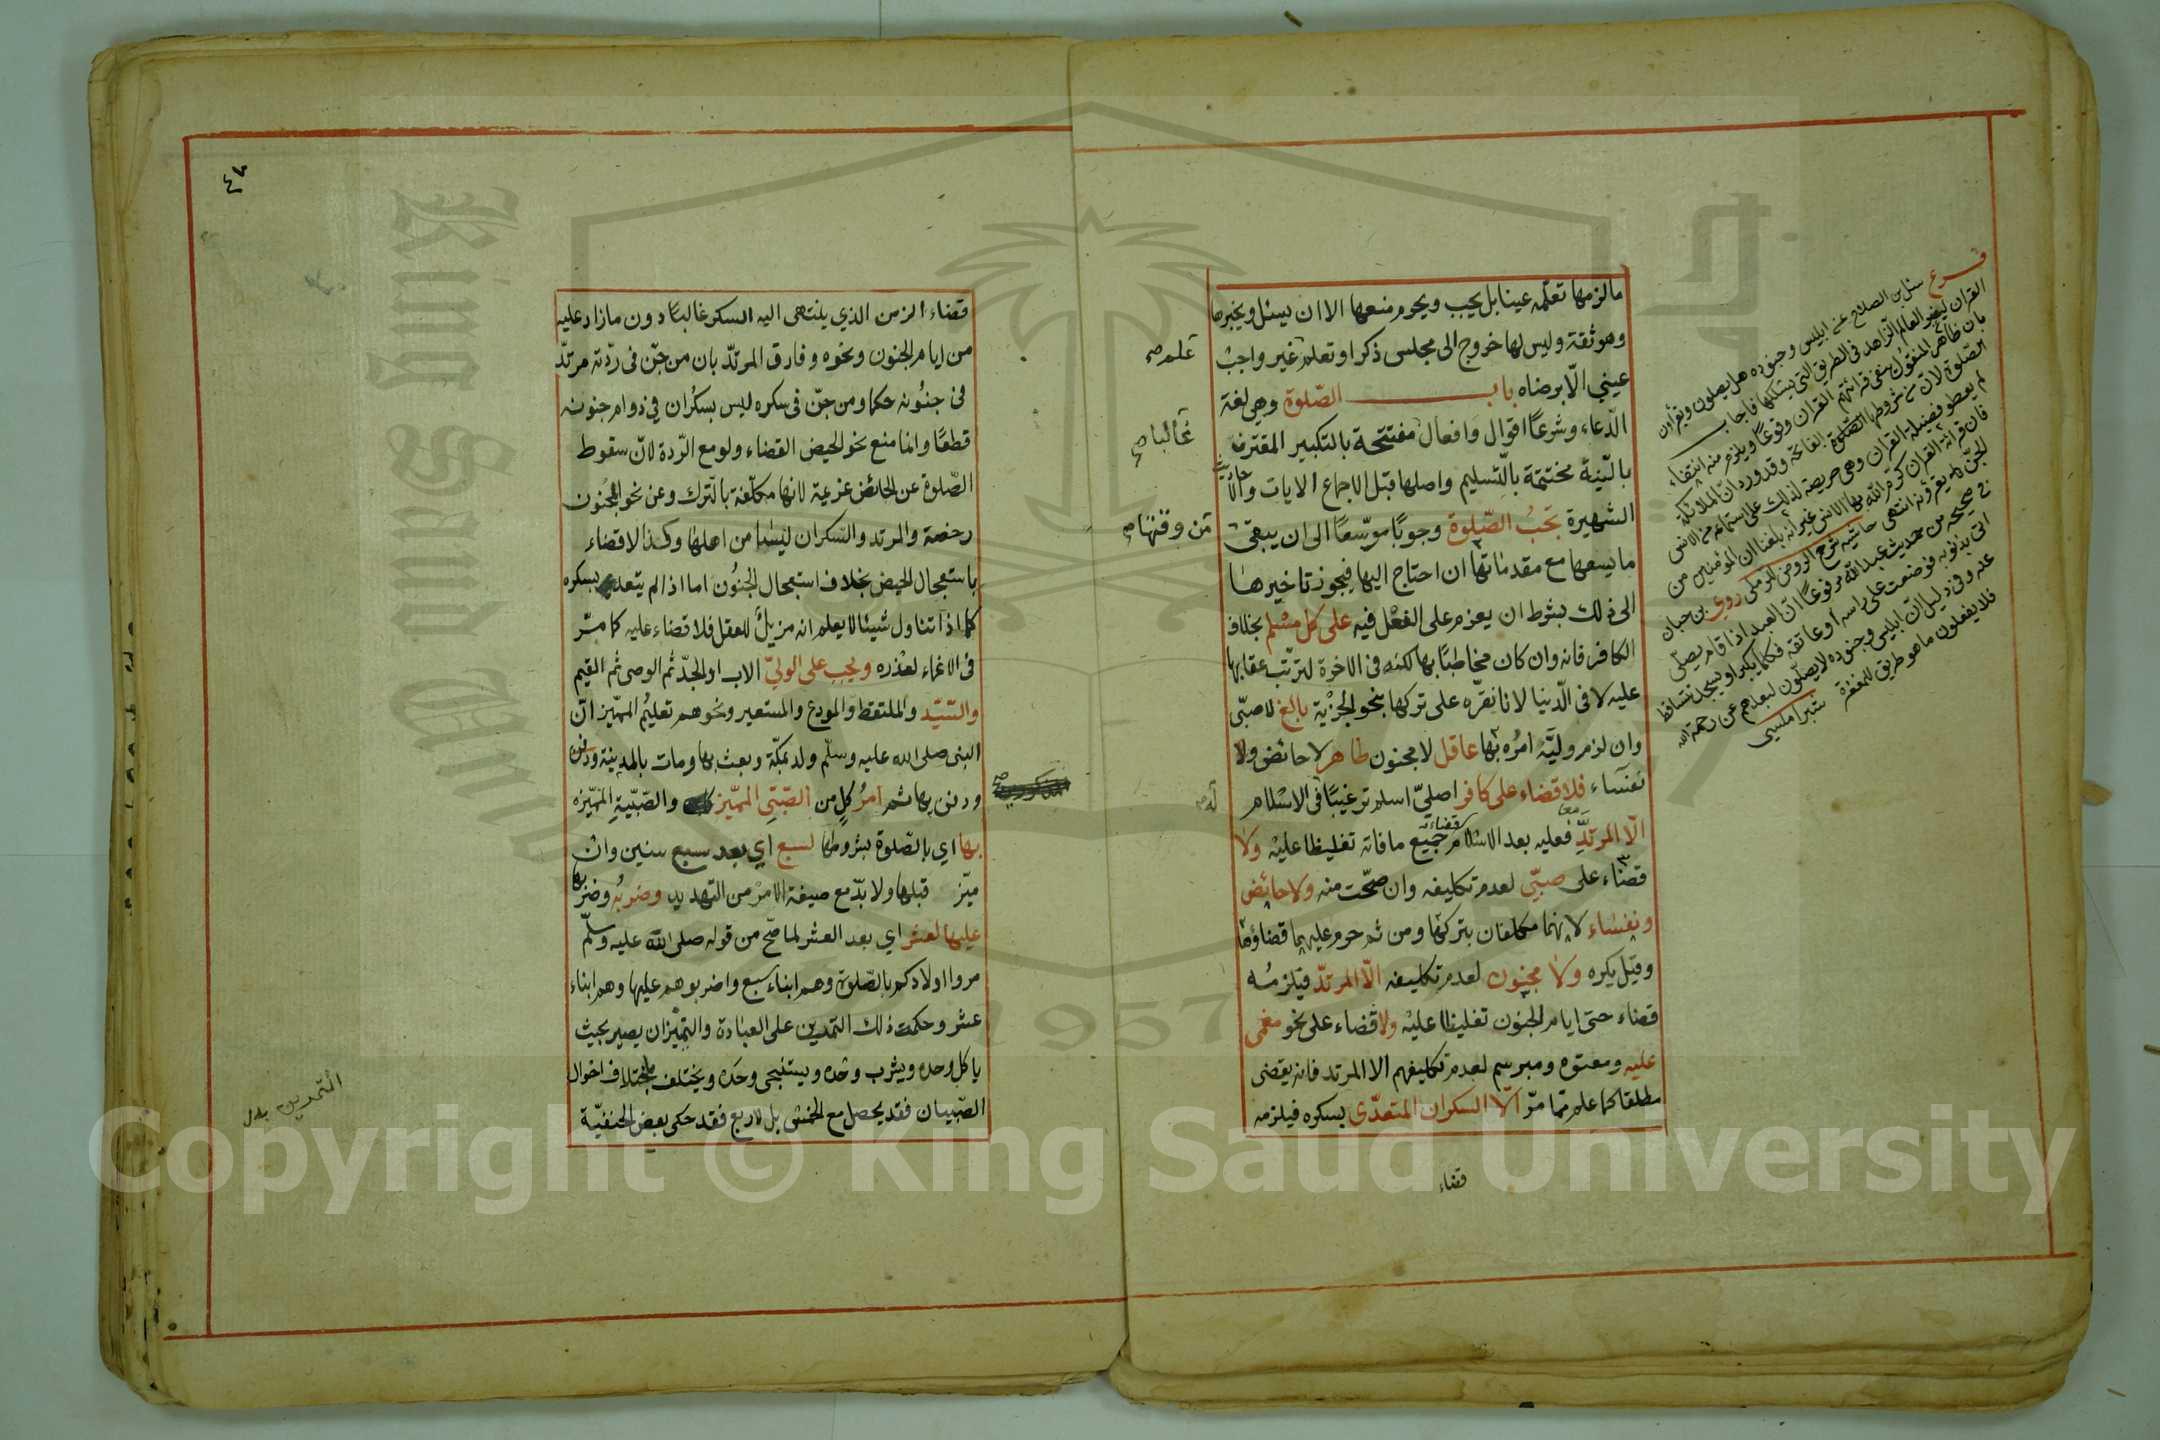 ما لزمها تعلّمه عينا بل يجب ويحرم منعها الا ان يسئل ويخبرها
وهو ثقة وليس لها خروج الى مجلس ذكر او تعلم غير واجب
عيني الّا برضاه باب الصّلوة وهي لغة
الدّعاء وشرعًا اقوال وافعال مفتتحة بالتكبير المقترن
بالنّيّة مختتمة بالتّسليم واصلها قبل الاجماع الايات والاحاديث
الشهيرة تجبُ الصّلوة وجوبًا موسّعًا الى ان يبقى
ما يسعها مع مقدماتها ان احتاج اليها فيجوز تاخيرها
الى ذلك بشرط ان يعزم على الفعْل فيه على كل مسْلم بخلاف
الكافر فانه وان كان مخاطبًا بها لكنه فى الاخرة لترتّب عقابها
عليه لا فى الّدنيا لانا نقرّه على تركها بنحو الجزْية بالغ لا صبّى
وان لزم وليّه امرُه بها عاقل لا مجنون طاهر لا حائض ولا
نفسَاء فلا قضاء على كافر اصليّ اسلم ترغيبًا فى الاسْلام
الّا المرتدّ فعليه بعد الاسْلام قضاء جميع ما فاته تغليظا عليْه ولا
قضاء على صبيّ لعدم تكليفه وان صحّت منه ولا حائض
ونفسَاء لانهما مكلفان بتركها ومن ثم حرم عليهما قضاؤها
وقيْل يكره ولا مجنون لعدم تكليفه الّا المرتدّ فيلزمُه
قضاء حتى ايام الجنون تغليظا عليْه ولا قضاء على نحو مغمى
عليه ومعتوه ومبرسم لعدم تكليفهم الا المرتد فانه يقضى
مطلقا كما علم مما مرّ الّا السكران المتعدّى بسكره فيلزمه
قضاء
علم صح
غالبا صح
من وقتها صح
له صح
فرع سئل بن الصلاح عن ابليس وجنوده هل يصلون ويقرأون
القران ليغر العالم الزاهد فى الطريق التى يسلكها فاجاب
بان ظاهر المنقول ينفى قرائتهم القران وقوعًا ويلزم منه انتفاء
الصلوة لان من شروطها الفاتحة وقد ورد ان الملائكة
لم يعطو فضيلة القران وهى حريصة لذلك على استماعه من الانس
فان قرائة القران كرّم الله بها الانس غير انه بلغنا ان المؤمنين من
الجن يقرؤنه انتهى حاشيه شرح الروض للرملى روى بن حبان
فى صحيحه من حديث عبد الله مرفوعًا ان العبد اذا قام يصلّى
اتى بذنوبه فوضعت على راسه او عاتقه فكلما يكبر او يسجد تساقط
عنه وفى دليل ان ابليس وجنوده لا يصلّون لبعدهم عن رحمة الله
فلا يفعلون ما هو طريق للمغفرة
شبراملسى
٤٧
قضاء الزمن الذي ينتهى اليه السكر غالبًا دون ما زاد عليه
من ايام الجنون ونحوه وفارق المرتدّ بان من جنّ فى ردّته مرتدّ
فى جنُونه حكما ومن جنّ فى سكره ليس بسكْران في دوام جنونه
قطعًا وانما منع نحو الحيض القضاء ولو مع الرّدة لانّ سقوط
الصّلوة عن الحائض عزيمة لانها مكلّفة بالترك وعن نحو المجنون
رخصة والمرتد والسّكران ليسَا من اهلها وكذا لا قضاء
باستعجال الحيض بخلاف استعجال الجنُون اما اذا لم يتعد بسكره
كما اذا تناول شيئا لا يعلم انه مزيلٌ للعقل فلا قضاء عليه كما مرّ
فى الاغماء لعذره ويجب على الوليّ الاب او الجدّ ثم الوصى ثم القيم
والسّيّد والملتقط والمودع والمستعير ونحوهم تعليمُ المميّز انّ
النبى صلى الله عليه وسلّم ولد بمكّة وبعث بها ومات بالمدينة ودفن
ودفن بها ثم امرُ كلٍ من الصّبّي المميّز والصّبّيةِ المميّزه
بها اي بالصّلوة بشروطها لسبع اي بعد سبع سنين وان
ميّز قبلها ولا بدّ مع صيغة الامْر من التهديد وضربُه وضربها
عليها لعشر اي بعد العشر لما صحّ من قوله صلى الله عليه وسلّم
مروا اولادكم بالصّلوة وهم ابناء سبع واضربوهم عليها وهم ابناء
عشر وحكمة ذلك التمرين على العبادة والتميّز ان يصير بحيث
ياكل وحده ويشرب وحْده ويستنجى وحدَه ويختلف باختلاف احوال
الصّبيان فقد يحصل مع الخمْس بل الاربع فقد حكى بعض الحنفيّة
التمرين بدل
King Saud University
1957
Copyright © King Saud University